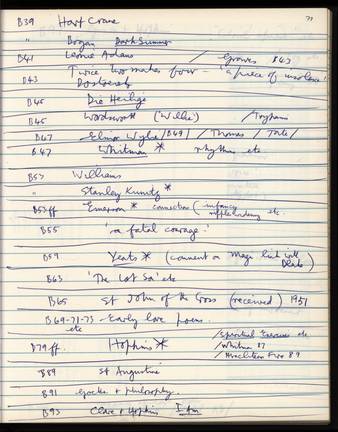 B39 Hart Crane
" Bogan Dark Summer
B41 Leonie Adams / Graves B43
B43 Twice two makes four – 'a piece of insolence'
Dostoevsky
B45 Die Heilige
B45 Wordsworth (Willis) /
B47 Elinor Wylie / B49 / Thomas / Tate /
B47 Whitman * rhythm etc
B53 Williams
" Stanley Kunitz *
B53ff Emerson * connection ( infancy
etc.
B55 'a fatal courage'
B59 Yeats * (comment on Mage link with
Blake)
B63 'The Lost Son' etc
B65 St John of the Cross (received) 1951
B69-71-73 – Early love poems
etc
B79ff. Hopkins * / Spiritual Exercises etc
/ Whitman 87
/ Heraclitean Fire 89
B89 St Augustine
B91 Goethe + Philosophy.
B93 Clare + Hopkins I am